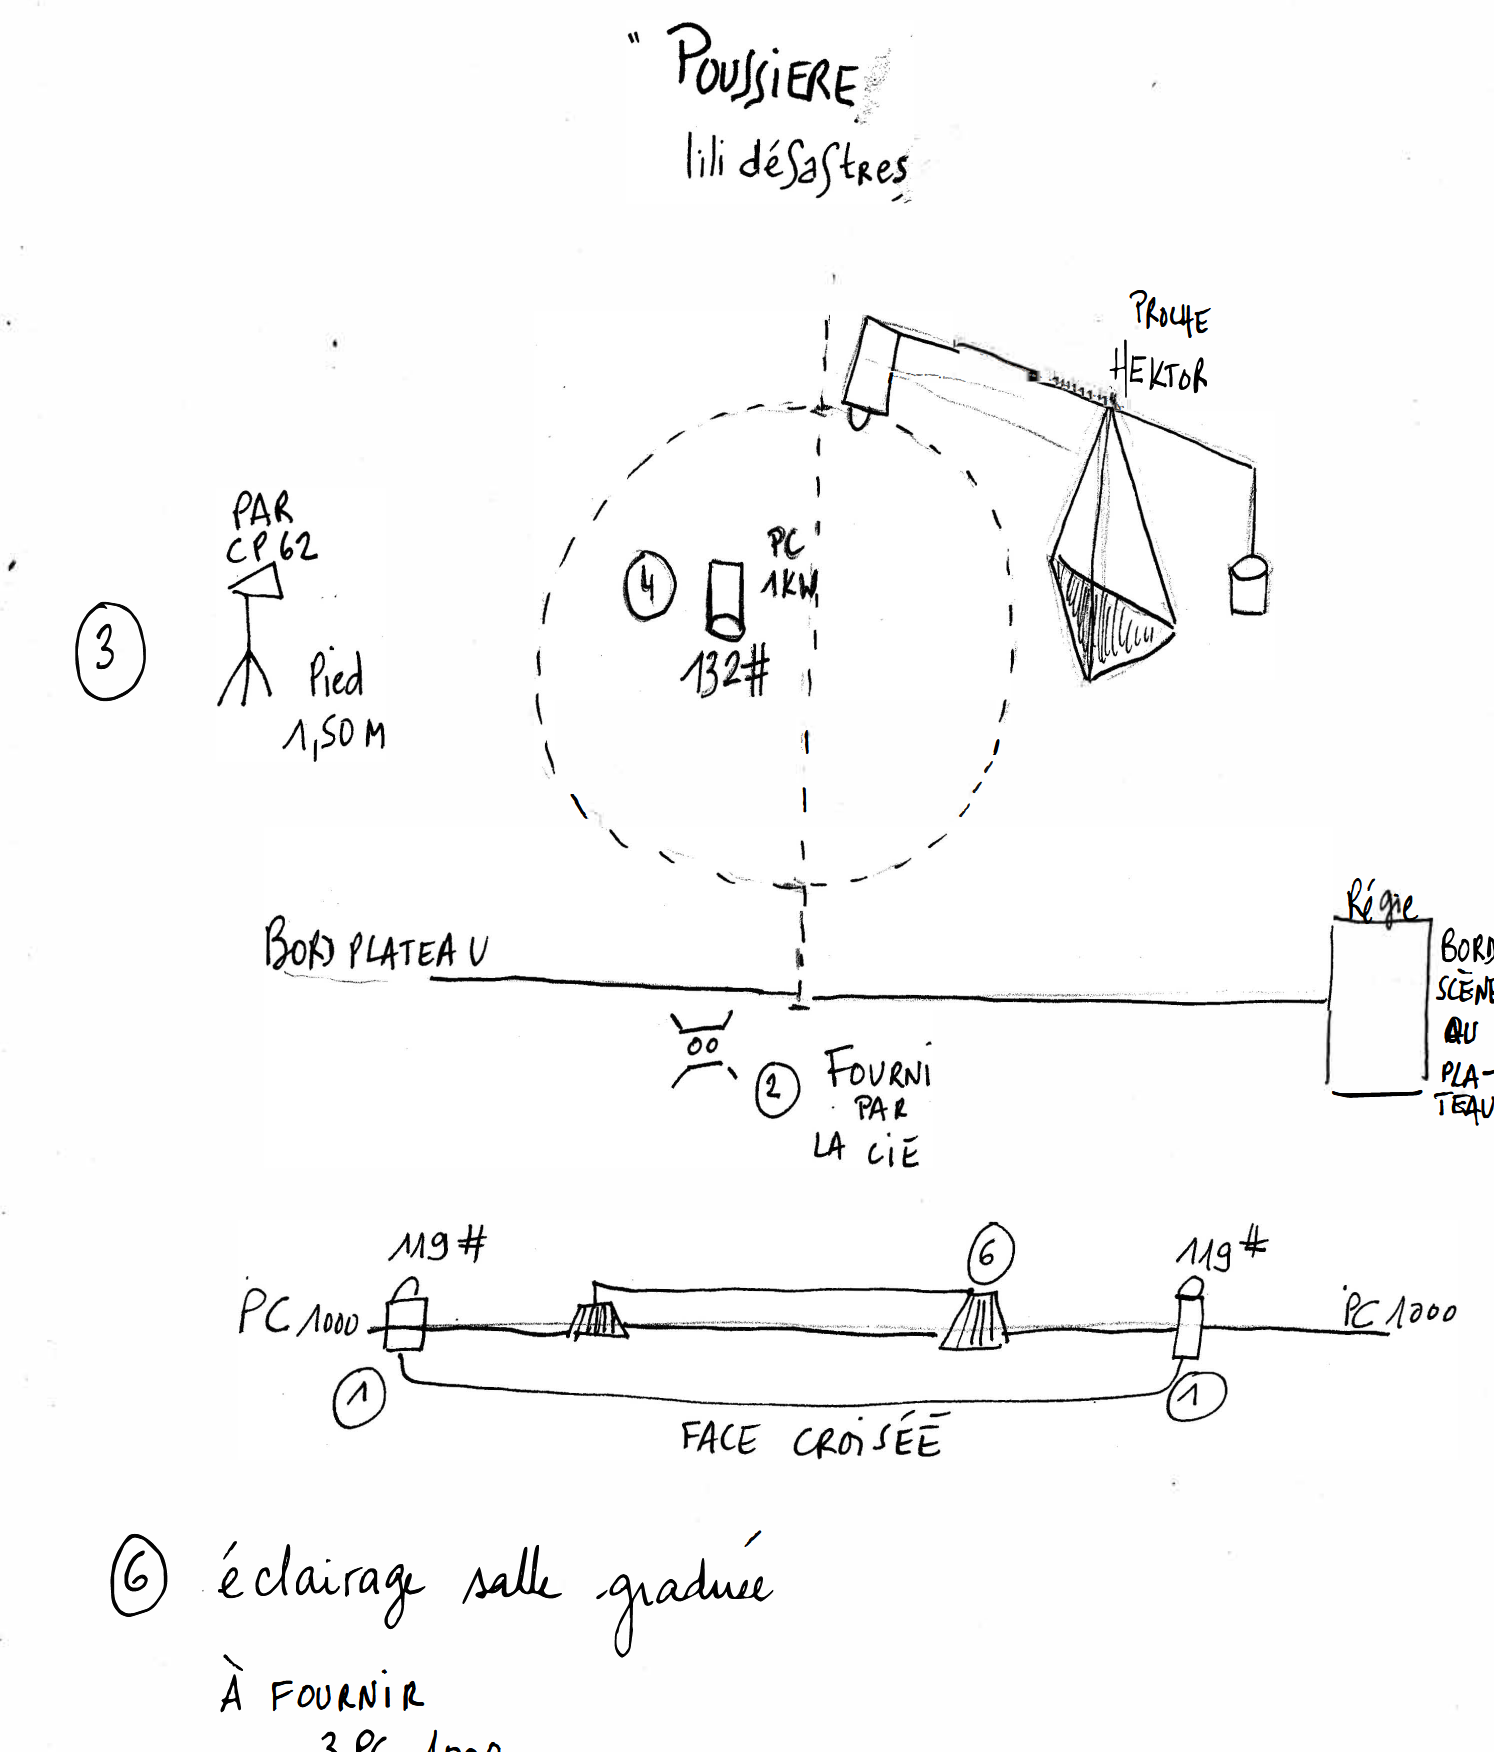 " POUSSiERE
lili désastres
PROCHE
HEKTOR
PAR
CP 62
3
Pied
1,50 M
4
PC
1KW
132#
BORD PLATEAU
Régie
BORD
SCÈNE
AU
PLA-
TEAU
2
FOURNI
PAR
LA CiE
119#
6
119#
PC 1000
PC 1000
1
1
FACE CROiSÉE
6 éclairage salle graduée
À FOURNiR
3 PC 1000